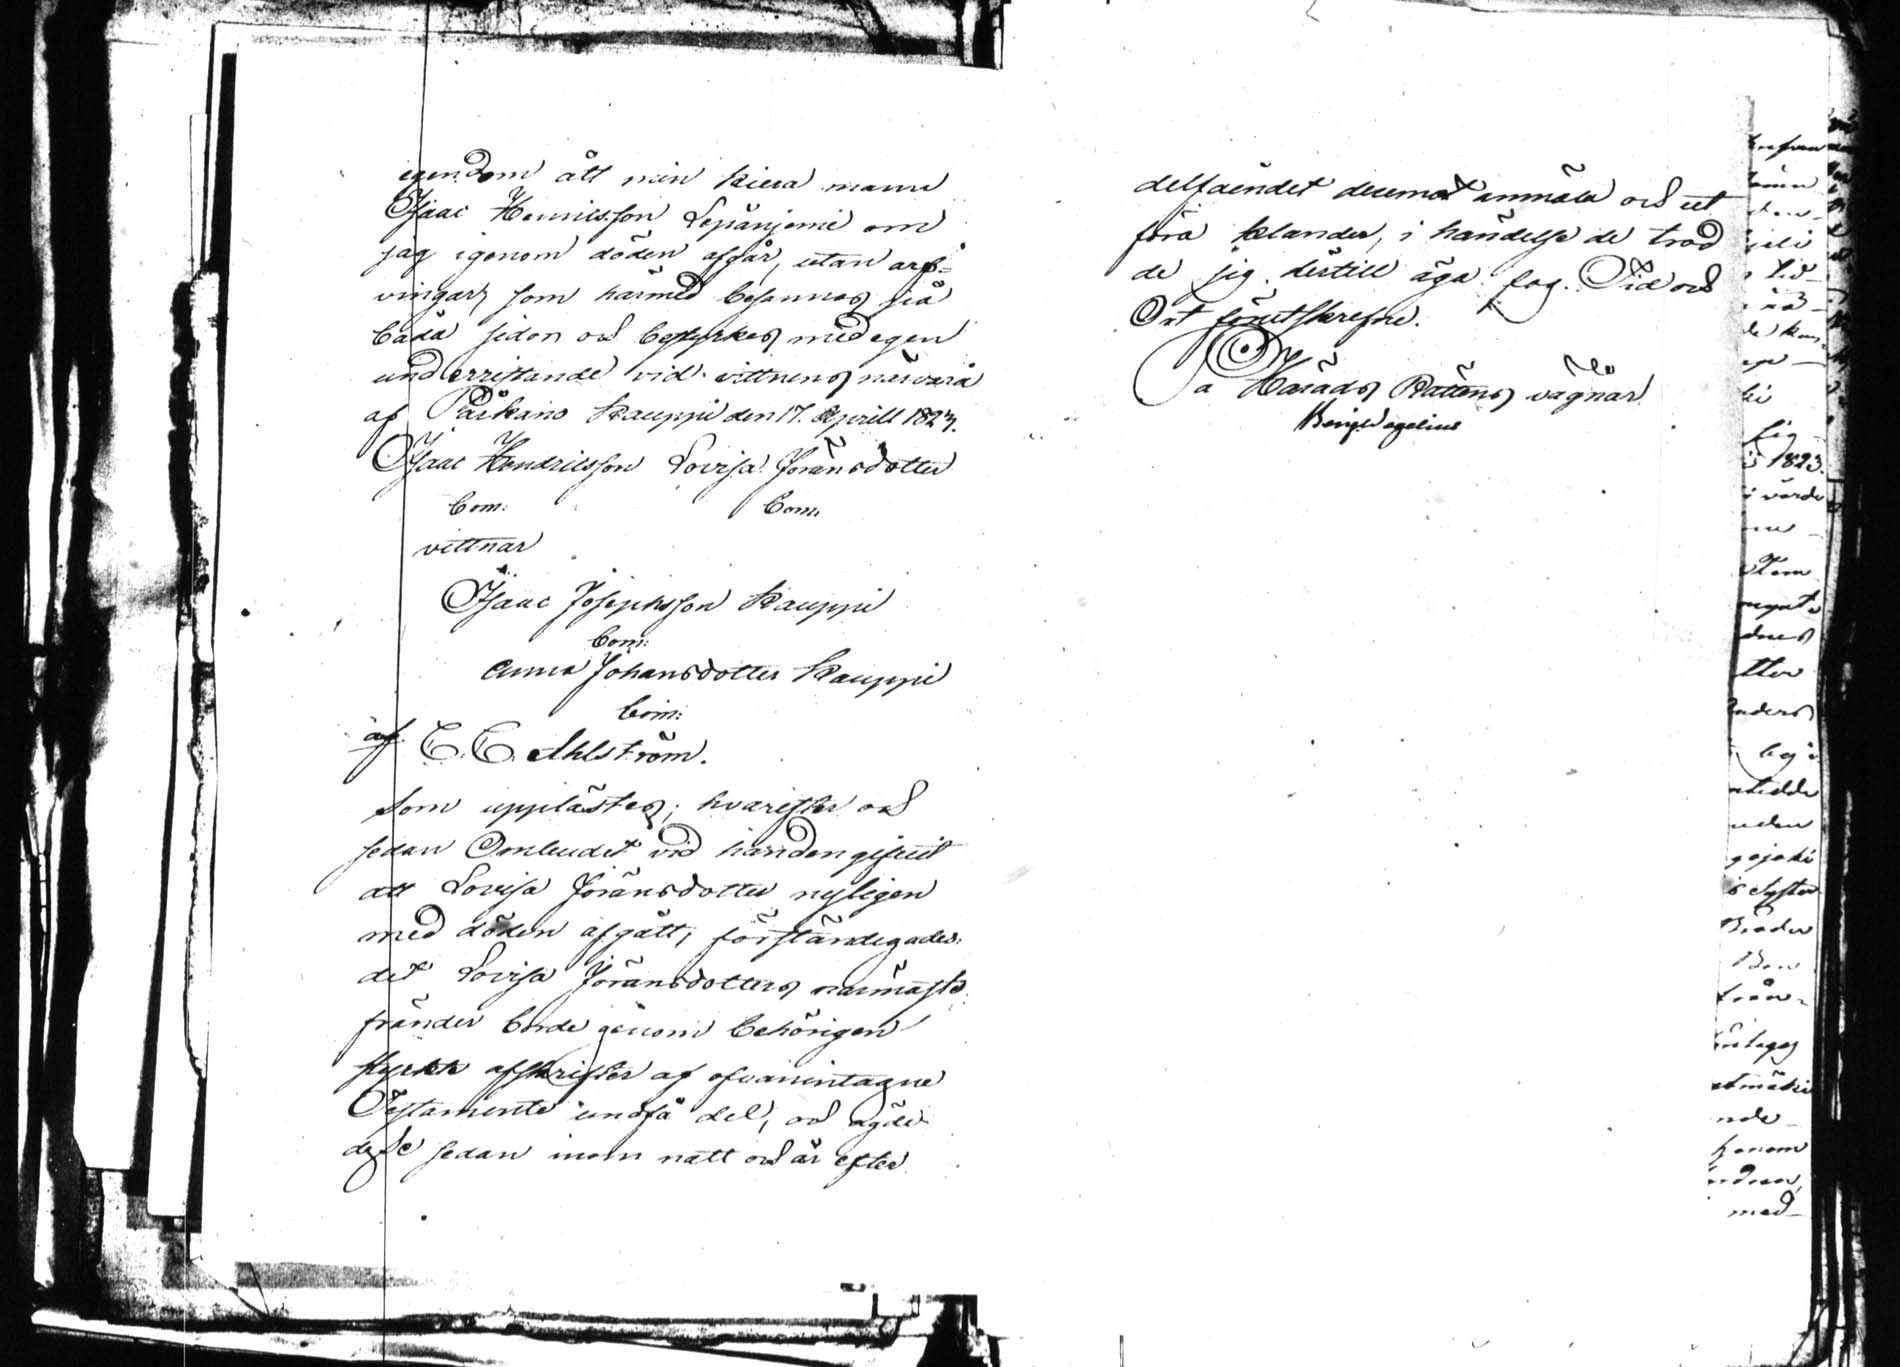 egendom ått min kiera mann
Isaac Hennisson Lepänjemi om
jag igenom döden afgår, utan arf-
vingar, som härmed besannas på
båda sidor och bestyrkes med egen
underristande vid vittnens närvara
af Parkano Kauppi den 17. Aprill 1823.
Isaac Hendricsson Lovisa Joransdotter
bom: bom:
vittnar
Isaac Josephsson Kauppi
bom:
Anna Johansdotter Kauppi
bom:
af C. C. Ahlström.
Som upplästes; hvarefter och
sedan Ombudet vid handen gifvit
att Lovisa Joransdotter nyligen
med döden afgått, förständigades:
det Lovisa Joransdotters närmaste
fränder borde genom behörigen
styrkte afskrifter af ofvanintagne
Testamente undfå del, och ägde
desse sedan inom natt och år efter
delfåendet deremot anmäla och ut
föra klander, i händelse de trod
de sig dertill äga fog. Tid och
Ort förutskrefne.
På Härads Rättens vägnar
Beng Wegelius
1823.
i värde
Kom
dnes
tter
Anders
begä
syster
Bröder
från-
honom
med-